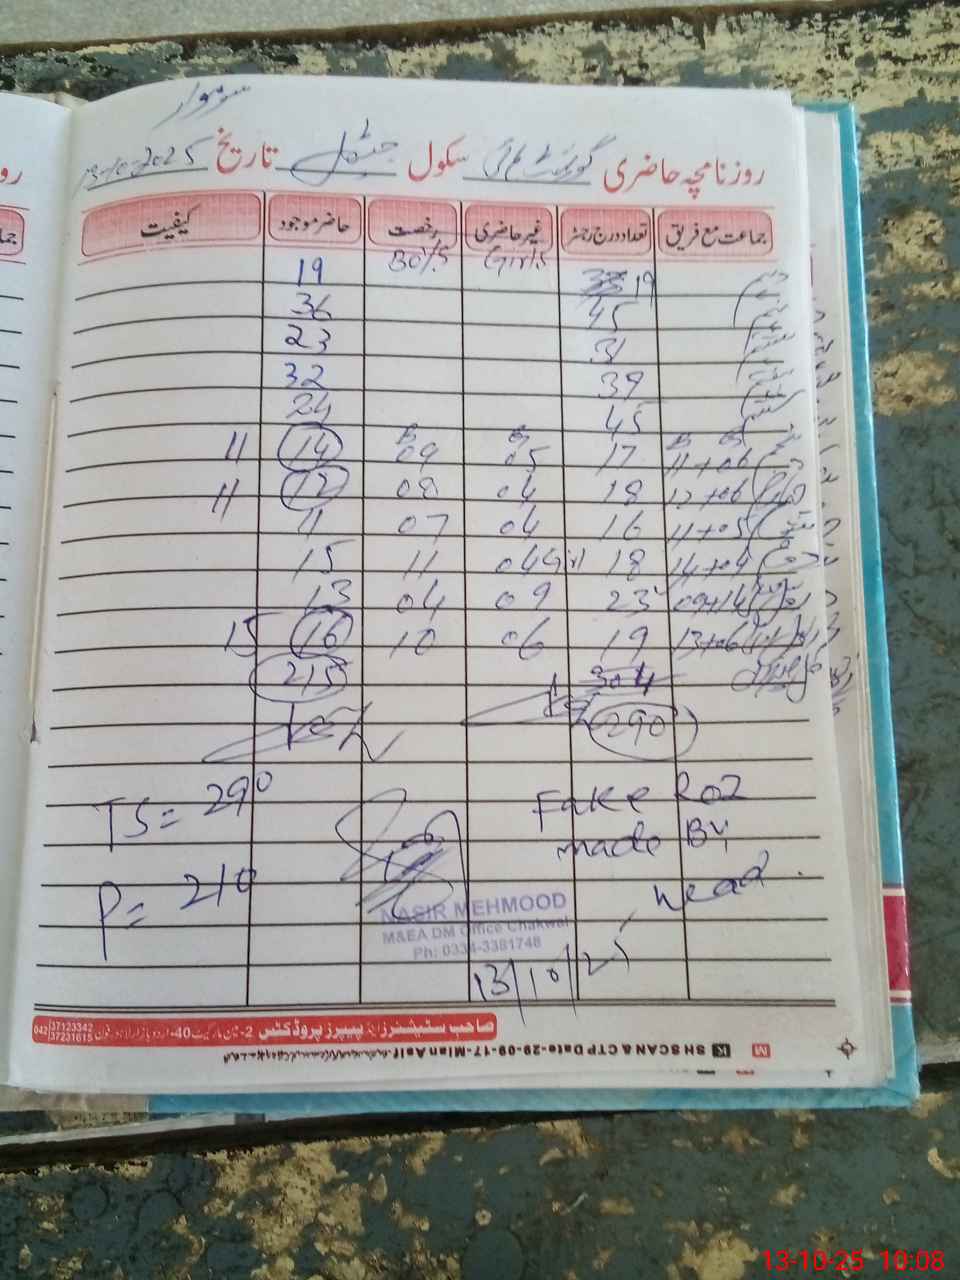 سوموار
روزنامچہ حاضری گورنمنٹ ہائی سکول تاریخ 13-10-2025
جماعت مع فریق تعداد درج رجسٹر غیر حاضری رخصت حاضر موجود کیفیت
Girls Boys
19 19
45 36
31 23
39 32
45 24
B G
11+06 17 05 09 14 11
12+06 18 04 08 12 11
11+05 16 04 07 11
14+04 18 04 Girl 11 15
09+14 23 09 04 13
13+06 19 06 10 16 15
304 215
290
TS = 290
Fake Roz
made By
Head.
P = 210
NASIR MEHMOOD
M&EA DM Office Chakwal
Ph: 0334-3381748
13/10/25
صاحب سٹیشنرز اینڈ پیپرز پروڈکٹس 2-خان مارکیٹ 40-اردو بازار لاہور فون 042 37123342 37231615
M K SH SCAN & CTP Date-29-09-17-Mian Asif
13-10-25 10:08